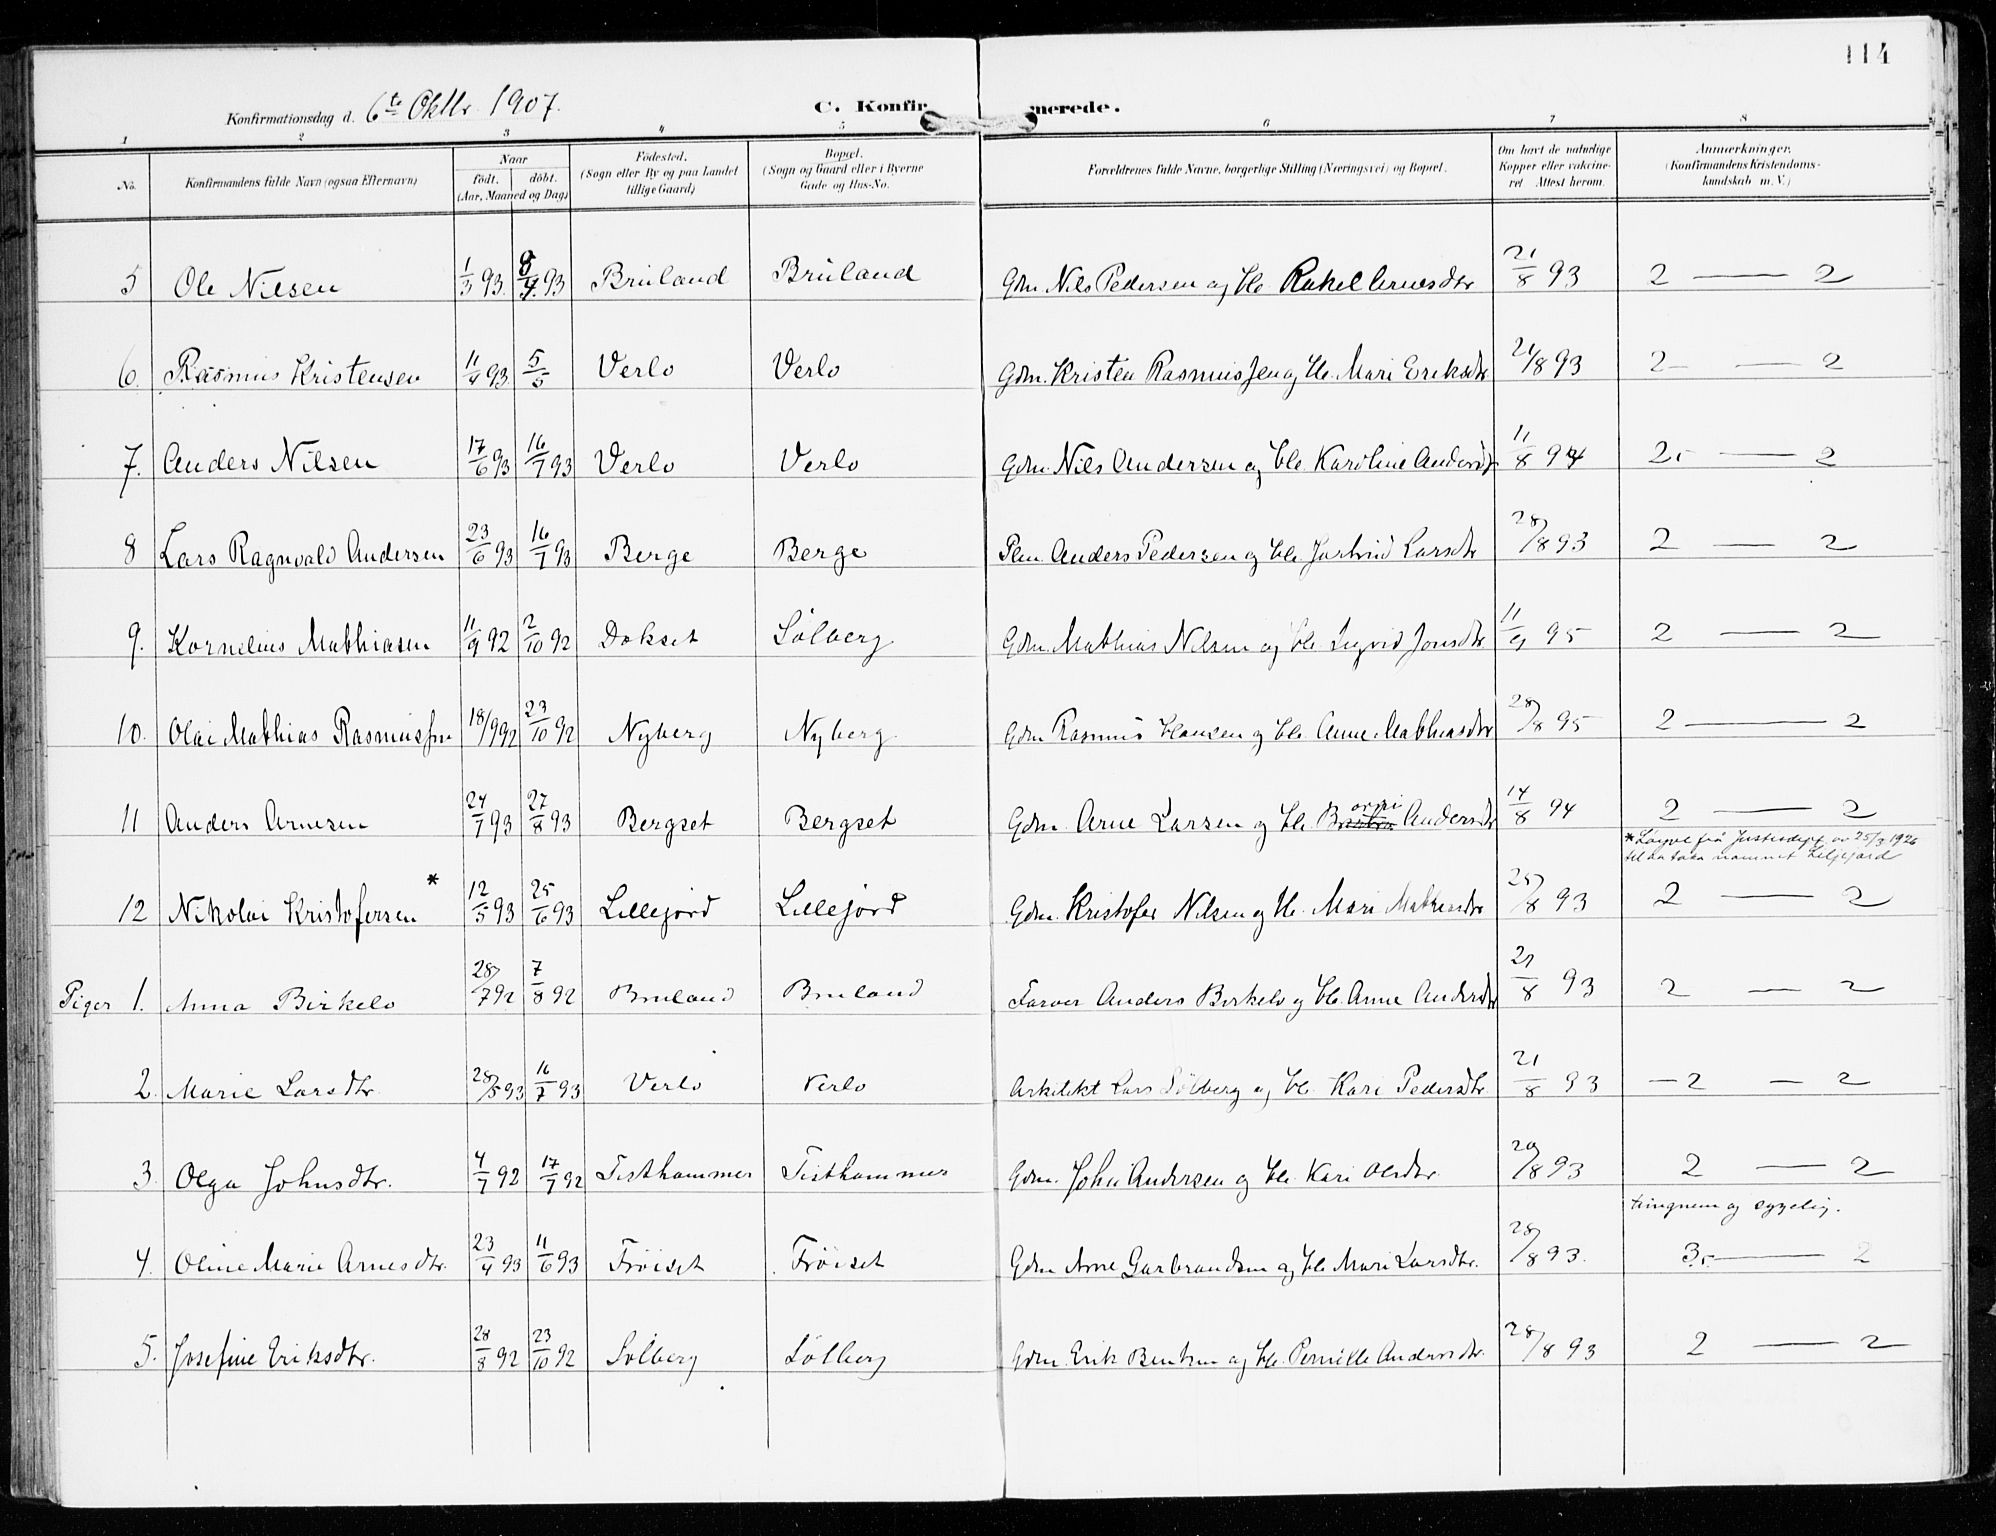 114
Konfirmationsdag d. 6te Oktbr. 1907.
C. Konfirmerede.
1 2 3 4 5 6 7 8
No. Konfirmandens fulde Navn (ogsaa Efternavn) Naar født. døbt. (Aar, Maaned og Dag) Fødested. (Sogn eller By og paa Landet tillige Gaard) Bopæl. (Sogn og Gaard eller i Byerne Gade og Hus-No. Forældrenes fulde Navne, borgerlige Stilling (Næringsvei) og Bopæl. Om havt de naturlige Kopper eller vakcineret Attest herom. Anmærkninger. (Konfirmandens Kristendomskundskab m. V.)
5 Ole Nilsen 1/3 93. 93 Bruland Bruland Gdm. Nils Pedersen og Hu. Rakel Arnesdtr 21/8 93 2 — 2
6. Rasmus Kristensen 11/4 93 5/5 Verlo Verlo Gdm. Kristen Rasmussen og Hu. Mari Eriksdtr 21/8 93 2 — 2
7. Anders Nilsen 17/6 93 16/7 93 Verlo Verlo Gdm. Nils Andersen og Hu. Karoline Andersdtr 11/8 94 2. — 2
8 Lars Ragnvald Andersen 23/6 93 16/7 93 Berge Berge Anders Pedersen og Hu. Jartrud Larsdtr 28/8 93 2 — 2
9. Kornelius Mathiasen 11/9 92 2/10 92 Dokset Sølberg Gdm. Mathias Nilsen og Hu. Ingrid Jonsdtr 11/9 95 2 — 2
10. Olai Mathias Rasmussen 18/9 92 23/10 92 Nyberg Nyberg Gdm Rasmus Hansen og Hu. Anne Mathiasdtr 28/8 95 2 — 2
11 Anders Arnesen 24/7 93 27/8 93 Bergset Bergset Gdm. Arne Larsen og Hu. Andersdtr 14/8 94 2 — 2
* Løyve frå Justisdept. av 25/3 1926
til aa taka namnet Liljejord
12 Nikolai Kristofersen * 12/5 93 25/6 93 Lillejord Lillejord Gdm. Kristofer Nilsen og Hu. Mari 28/8 93 2 — 2
Piger 1. Anna Birkelo 28/7 92 7/8 92 Bruland Bruland Farver Anders Birkelo og Hu. Anne Andersdtr 21/8 93 2 — 2
2. Marie Larsdtr. 28/5 93 16/7 93 Verlo Verlo Arkitekt Lars Sølberg og Hu. Kari Pedersdtr. 21/8 93 — 2 — 2
3. Olga Johnsdtr. 4/7 92 17/7 92 Tisthammer Tisthammer Gdm. John Andersen og Hu. Kari Olsdtr. 29/8 93 2 — 2
tungnem og sygelig.
4. Oline Marie Arnesdtr. 23/4 93 11/6 93 Frøiset Frøiset Gdm Arne Garbrandsen og Hu Mari Larsdtr. 28/8 93. 3. — 2
5. Josefine Eriksdtr. 28/8 92 23/10 92 Sølberg Sølberg Gdm. Erik Bentsen og Hu. Pernille Andersdtr. 28/8 93 2 — 2